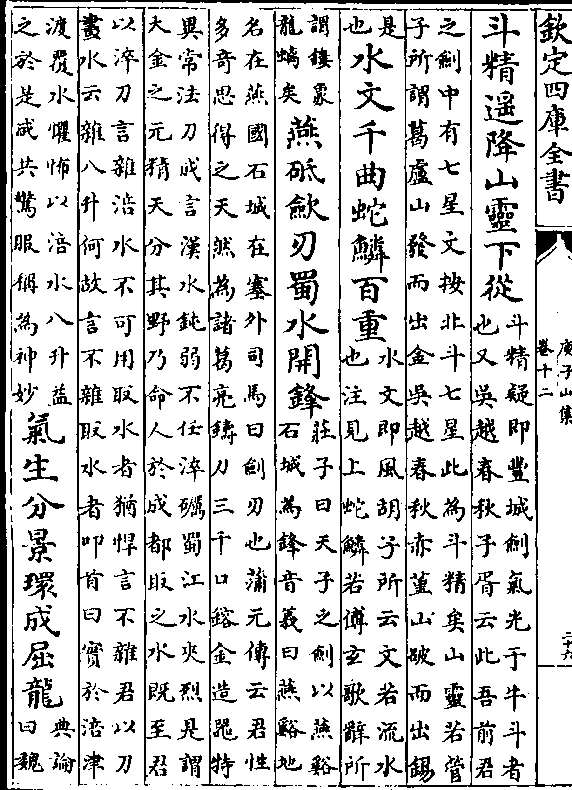 欽定四庫全書
庾子山集
卷十二
斗精遥降山靈下從
斗精疑即豐城劍氣光于牛斗者
也又吳越春秋子胥云此吾前君
之劍中有七星文按北斗七星此為斗精矣山靈若管
子所謂葛盧山發而出金吳越春秋赤堇山破而出錫
是
也
水文千曲蛇鱗百重
水文即風胡子所云文若流水
也注見上蛇鱗若傅玄歌辭所
謂鏤象
龍螭矣
燕砥歛刃蜀水開鋒
莊子曰天子之劍以燕谿
石城為鋒音義曰燕谿地
名在燕國石城在塞外司馬曰劍刃也蒲元傳云君性
多奇思得之天然為諸葛亮鑄刀三千口鎔金造器特
異常法刀成言漢水鈍弱不任淬礪蜀江水爽烈是謂
大金之元精天分其野乃命人於成都取之水既至君
以淬刀言雜涪水不可用取水者猶悍言不雜君以刀
畫水云雜八升何故言不雜取水者叩首曰實於涪津
渡覆水懼怖以涪水八升益
之於是咸共驚服稱為神妙
氣生分景環成屈龍
典論
曰魏